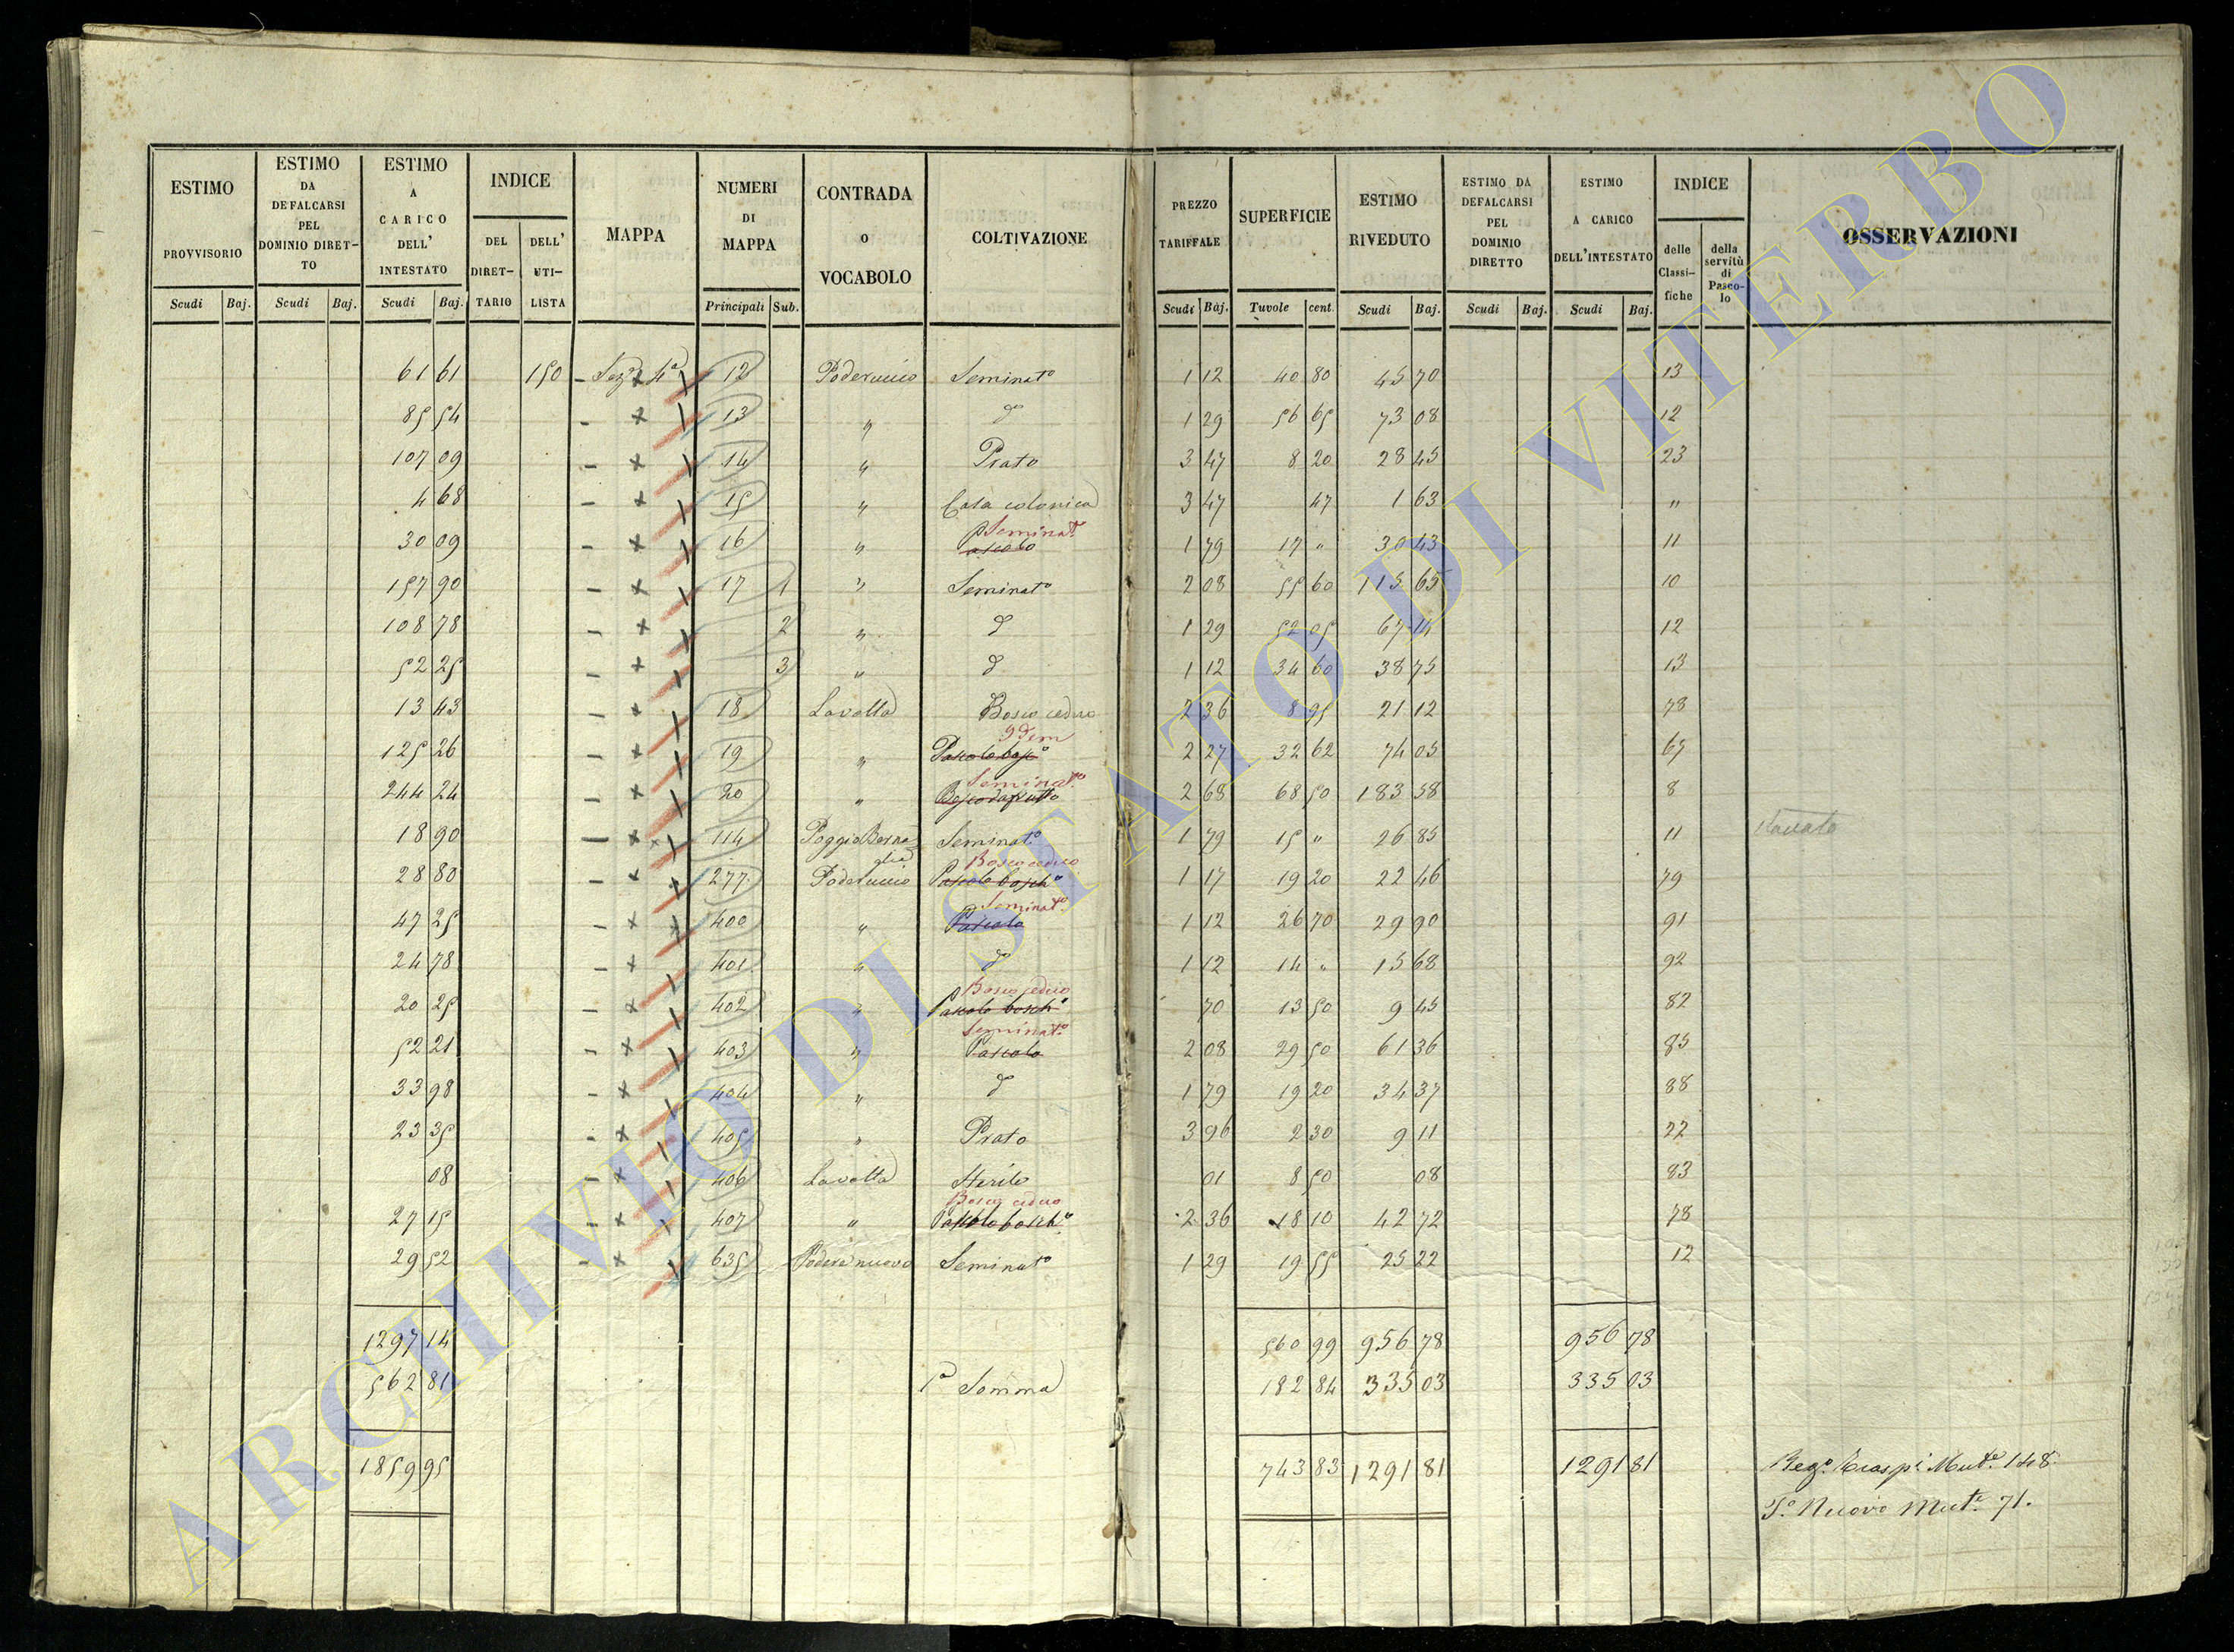 ESTIMO PROVVISORIO Scudi Baj.
ESTIMO DA DEFALCARSI PEL DOMINIO DIRET- TO Scudi Baj.
ESTIMO A CARICO DELL' INTESTATO Scudi Baj.
INDICE DEL DIRET- TARIO DELL' UTI- LISTA
MAPPA
NUMERI DI MAPPA Principali Sub.
CONTRADA O VOCABOLO
COLTIVAZIONE
PREZZO TARIFFALE Scudi Baj.
SUPERFICIE Tavole cent.
ESTIMO RIVEDUTO Scudi Baj.
ESTIMO DA DEFALCARSI PEL DOMINIO DIRETTO Scudi Baj.
ESTIMO A CARICO DELL'INTESTATO Scudi Baj.
INDICE delle Classi- fiche della servitù di Pasco- lo
OSSERVAZIONI
61 61 150 - Sez. 4a 12 Poderuccio Seminato 1 12 40 80 45 70 13
85 54 - x 13 " do 1 29 56 65 73 08 12
107 09 - x 14 " Prato 3 47 8 20 28 45 23
4 68 - x 15 " Casa colonica 3 47 47 1 63 "
Seminato
30 09 - x 16 " Pascolo 1 79 17 " 30 43 11
157 90 - x 17 1 " Seminato 2 08 55 60 115 65 10
108 78 - x 2 " do 1 29 52 05 67 14 12
52 25 - x 3 " do 1 12 34 60 38 75 13
13 43 - x 18 Lavolta Bosco ceduo 2 36 8 95 21 12 78
Idem
125 26 - x 19 " Pascolo bosco 2 27 32 62 74 05 67
Seminato
244 24 - x 20 " Bosco da frutto 2 68 68 50 183 58 8
18 90 - x 114 Poggio Berna glia Seminato 1 79 15 " 26 85 11
Bosco ceduo
28 80 - x 277 Poderuccio Pascolo boscho 1 17 19 20 22 46 79
Seminato
47 25 - x 400 " Pascolo 1 12 26 70 29 90 91
24 78 - x 401 " do 1 12 14 " 15 68 92
Bosco ceduo
20 25 - x 402 " Pascolo boscho 70 13 50 9 45 82
Seminato
52 21 - x 403 " Pascolo 2 08 29 50 61 36 85
33 98 - x 404 " do 1 79 19 20 34 37 88
23 35 - x 405 " Prato 3 96 2 30 9 11 22
08 - x 406 Lavolta Sterile 01 8 50 08 83
Bosco ceduo
27 15 - x 407 " Pascolo boscho 2 36 18 10 42 72 78
29 52 - x 635 Podere nuovo Seminato 1 29 19 55 25 22 12
1297 14 560 99 956 78 956 78
562 81 1a Somma 182 84 335 03 335 03
1859 95 743 83 1291 81 1291 81
Rego. Traspi Mute. 148
To. Nuovo Mute. 71.
ARCHIVIO DI STATO DI VITERBO